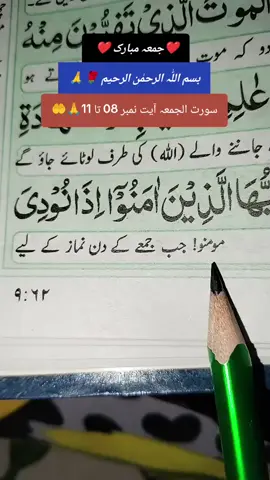 الْمَوْتَ الَّذِيْ تَفِرُّوْنَ مِنْهُ
❤️جمعہ مبارک❤️
دو کہ موت
ہو
بسم اللہ الرحمٰن الرحیم 🌹🙏
سورت الجمعہ آیت نمبر 08 تا 11🙏🤲
عٰلِمِ
جاننے والے (اللہ) کی طرف لوٹائے جاؤ گے
الَّذِيْنَ اٰمَنُوْۤا اِذَا نُوْدِيَ
مومنو! جب جمعے کے دن نماز کے لیے
۹:۶۲